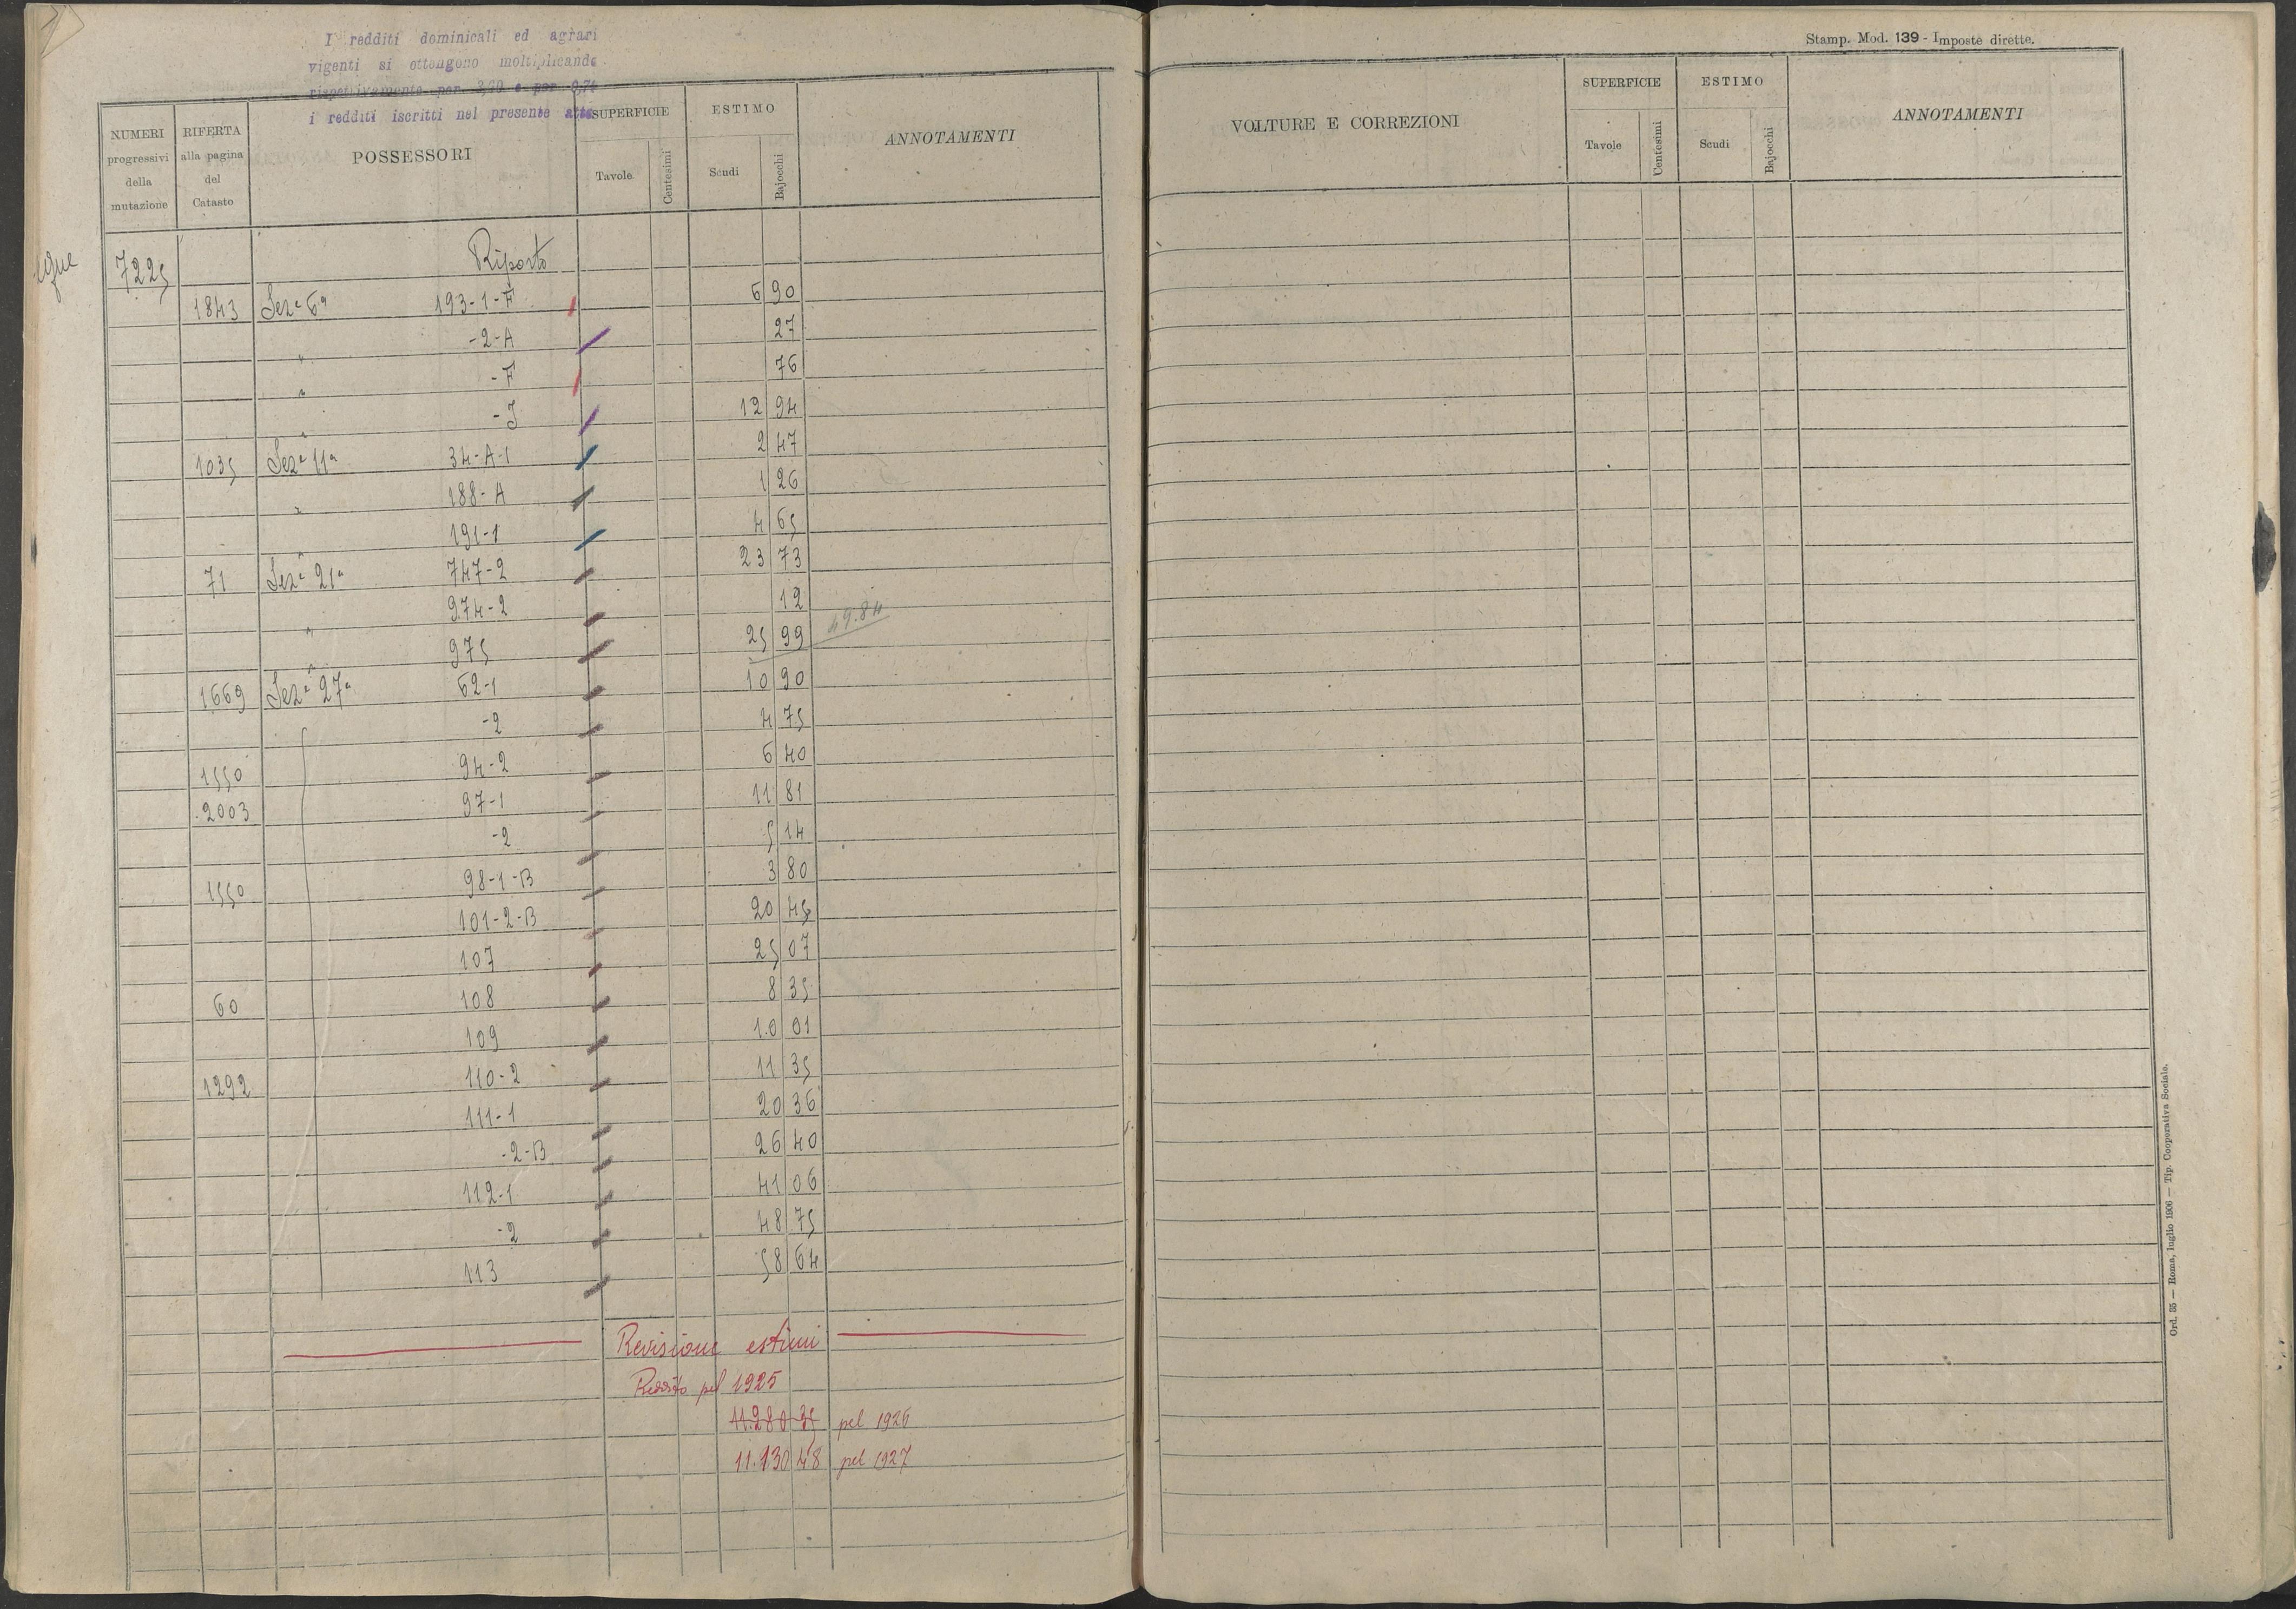 I redditi dominicali ed agrari
vigenti si ottengono moltiplicando
rispettivamente per 3,20 e per 0,74
i redditi iscritti nel presente atto
NUMERI progressivi della mutazione
RIFERTA alla pagina del Catasto
POSSESSORI
SUPERFICIE
Tavole
Centesimi
ESTIMO
Scudi
Bajocchi
ANNOTAMENTI
segue 7225 Riporto
1843 Sezᵉ 6ª 193-1-F 6 90
" -2-A 27
" -F 76
" -I 12 94
1035 Sezᵉ 11ª 34-A-1 2 47
" 188-A 1 26
" 191-1 4 65
71 Sezᵉ 21ª 747-2 23 73
" 974-2 12
" 975 25 99 49.84
1669 Sezᵉ 27ª 62-1 10 90
-2 4 75
1550 94-2 6 40
2003 97-1 11 81
-2 5 14
1550 98-1-B 3 80
101-2-B 20 45
107 25 07
60 108 8 35
109 10 01
1292 110-2 11 35
111-1 20 36
-2-B 26 40
112-1 41 06
-2 48 75
113 58 64
Revisione estimi
Reddito pel 1925
11.280 35 pel 1926
11.130 48 pel 1927
Stamp. Mod. 139 - Imposte dirette.
VOLTURE E CORREZIONI
SUPERFICIE
Tavole
Centesimi
ESTIMO
Scudi
Bajocchi
ANNOTAMENTI
Ord. 35 — Roma, luglio 1906 — Tip. Cooperativa Sociale.